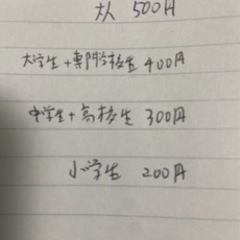 大人 500円
大学生+専門学校生 400円
中学生+高校生 300円
小学生 200円